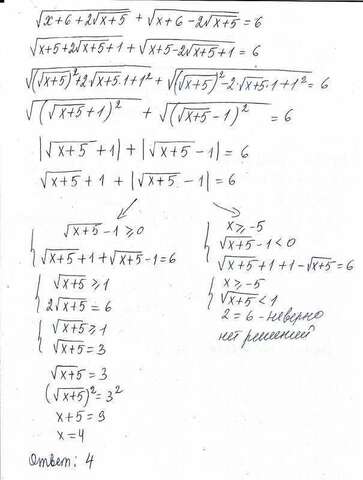 √(x+6+2√(x+5)) + √(x+6-2√(x+5)) = 6
√(x+5+2√(x+5)+1) + √(x+5-2√(x+5)+1) = 6
√((√(x+5))²+2√(x+5)·1+1²) + √((√(x+5))²-2·√(x+5)·1+1²) = 6
√((√(x+5)+1)²) + √((√(x+5)-1)²) = 6
|√(x+5)+1| + |√(x+5)-1| = 6
√(x+5)+1 + |√(x+5)-1| = 6
√(x+5)-1 ≥ 0
√(x+5)+1+√(x+5)-1=6
√(x+5) ≥ 1
2√(x+5) = 6
√(x+5) ≥ 1
√(x+5) = 3
√(x+5) = 3
(√(x+5))² = 3²
x+5 = 9
x = 4
x ≥ -5
√(x+5)-1 < 0
√(x+5)+1+1-√(x+5)=6
x ≥ -5
√(x+5) < 1
2 = 6 - неверно
нет решений
Ответ: 4